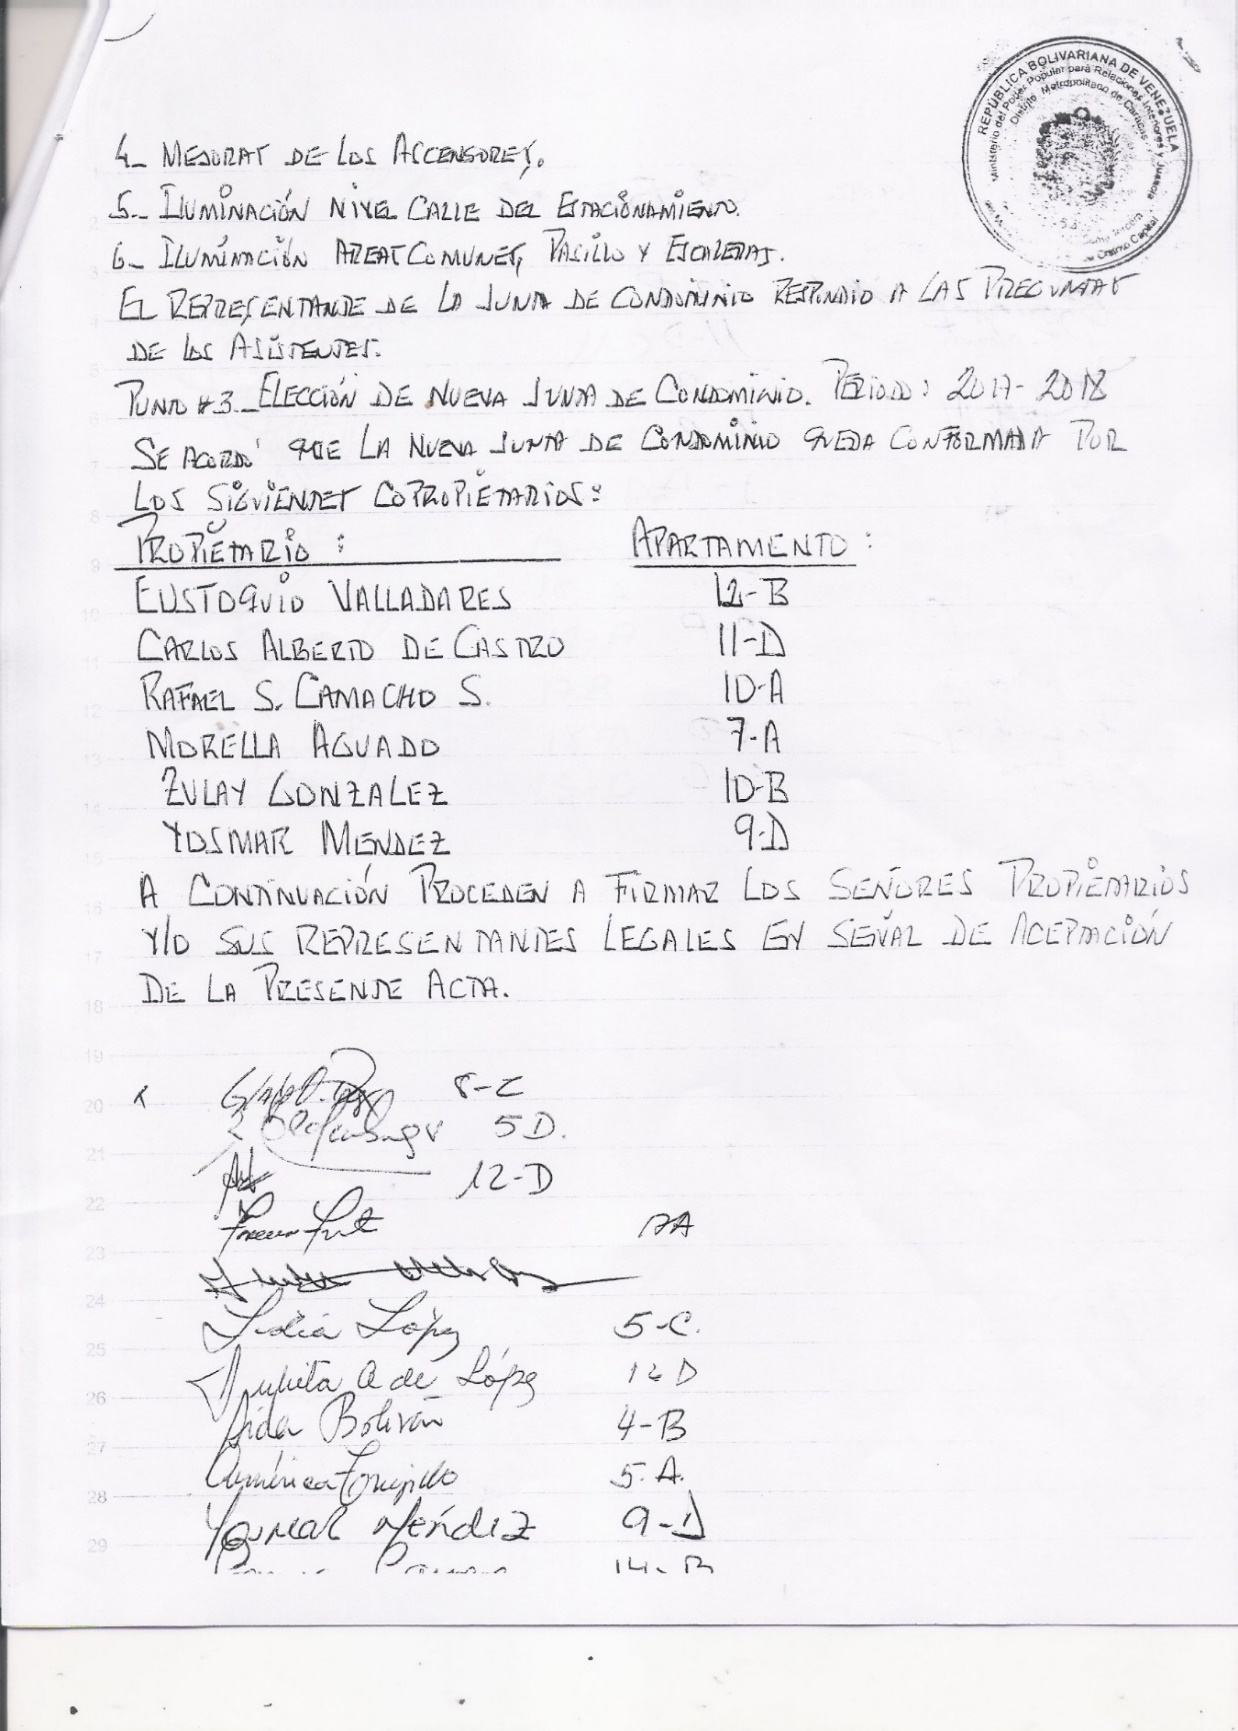 REPÚBLICA BOLIVARIANA DE VENEZUELA
Ministerio del Poder Popular para Relaciones Interiores y Justicia
Distrito Metropolitano de Caracas
4- MEJORAS DE LOS ACCENSORES.
5.- ILUMINACIÓN NIVEL CALLE DEL ESTACIONAMIENTO.
6- ILUMINACIÓN AREAS COMUNES, PASILLO Y ESCALERAS.
EL REPRESENTANTE DE LA JUNTA DE CONDOMINIO RESPONDIO A LAS PREGUNTAS
DE LOS ASISTENTES.
PUNTO #3.- ELECCIÓN DE NUEVA JUNTA DE CONDOMINIO. PERIODO: 2017-2018
SE ACORDÓ QUE LA NUEVA JUNTA DE CONDOMINIO QUEDA CONFORMADA POR
LOS SIGUIENTES COPROPIETARIOS:
PROPIETARIO: APARTAMENTO:
EUSTOQUIO VALLADARES 12-B
CARLOS ALBERTO DE CASTRO 11-D
RAFAEL S. CAMACHO S. 10-A
MORELLA AGUADO 7-A
ZULAY GONZALEZ 10-B
YOSMAR MENDEZ 9-D
A CONTINUACIÓN PROCEDEN A FIRMAR LOS SEÑORES PROPIETARIOS
Y/O SUS REPRESENTANTES LEGALES EN SEÑAL DE ACEPTACIÓN
DE LA PRESENTE ACTA.
8-C
5D.
12-D
Lidia López 5-C.
Julieta A de López 12D
Aida Bolívar 4-B
América Trujillo 5-A.
Yosmar Méndez 9-D
14-B